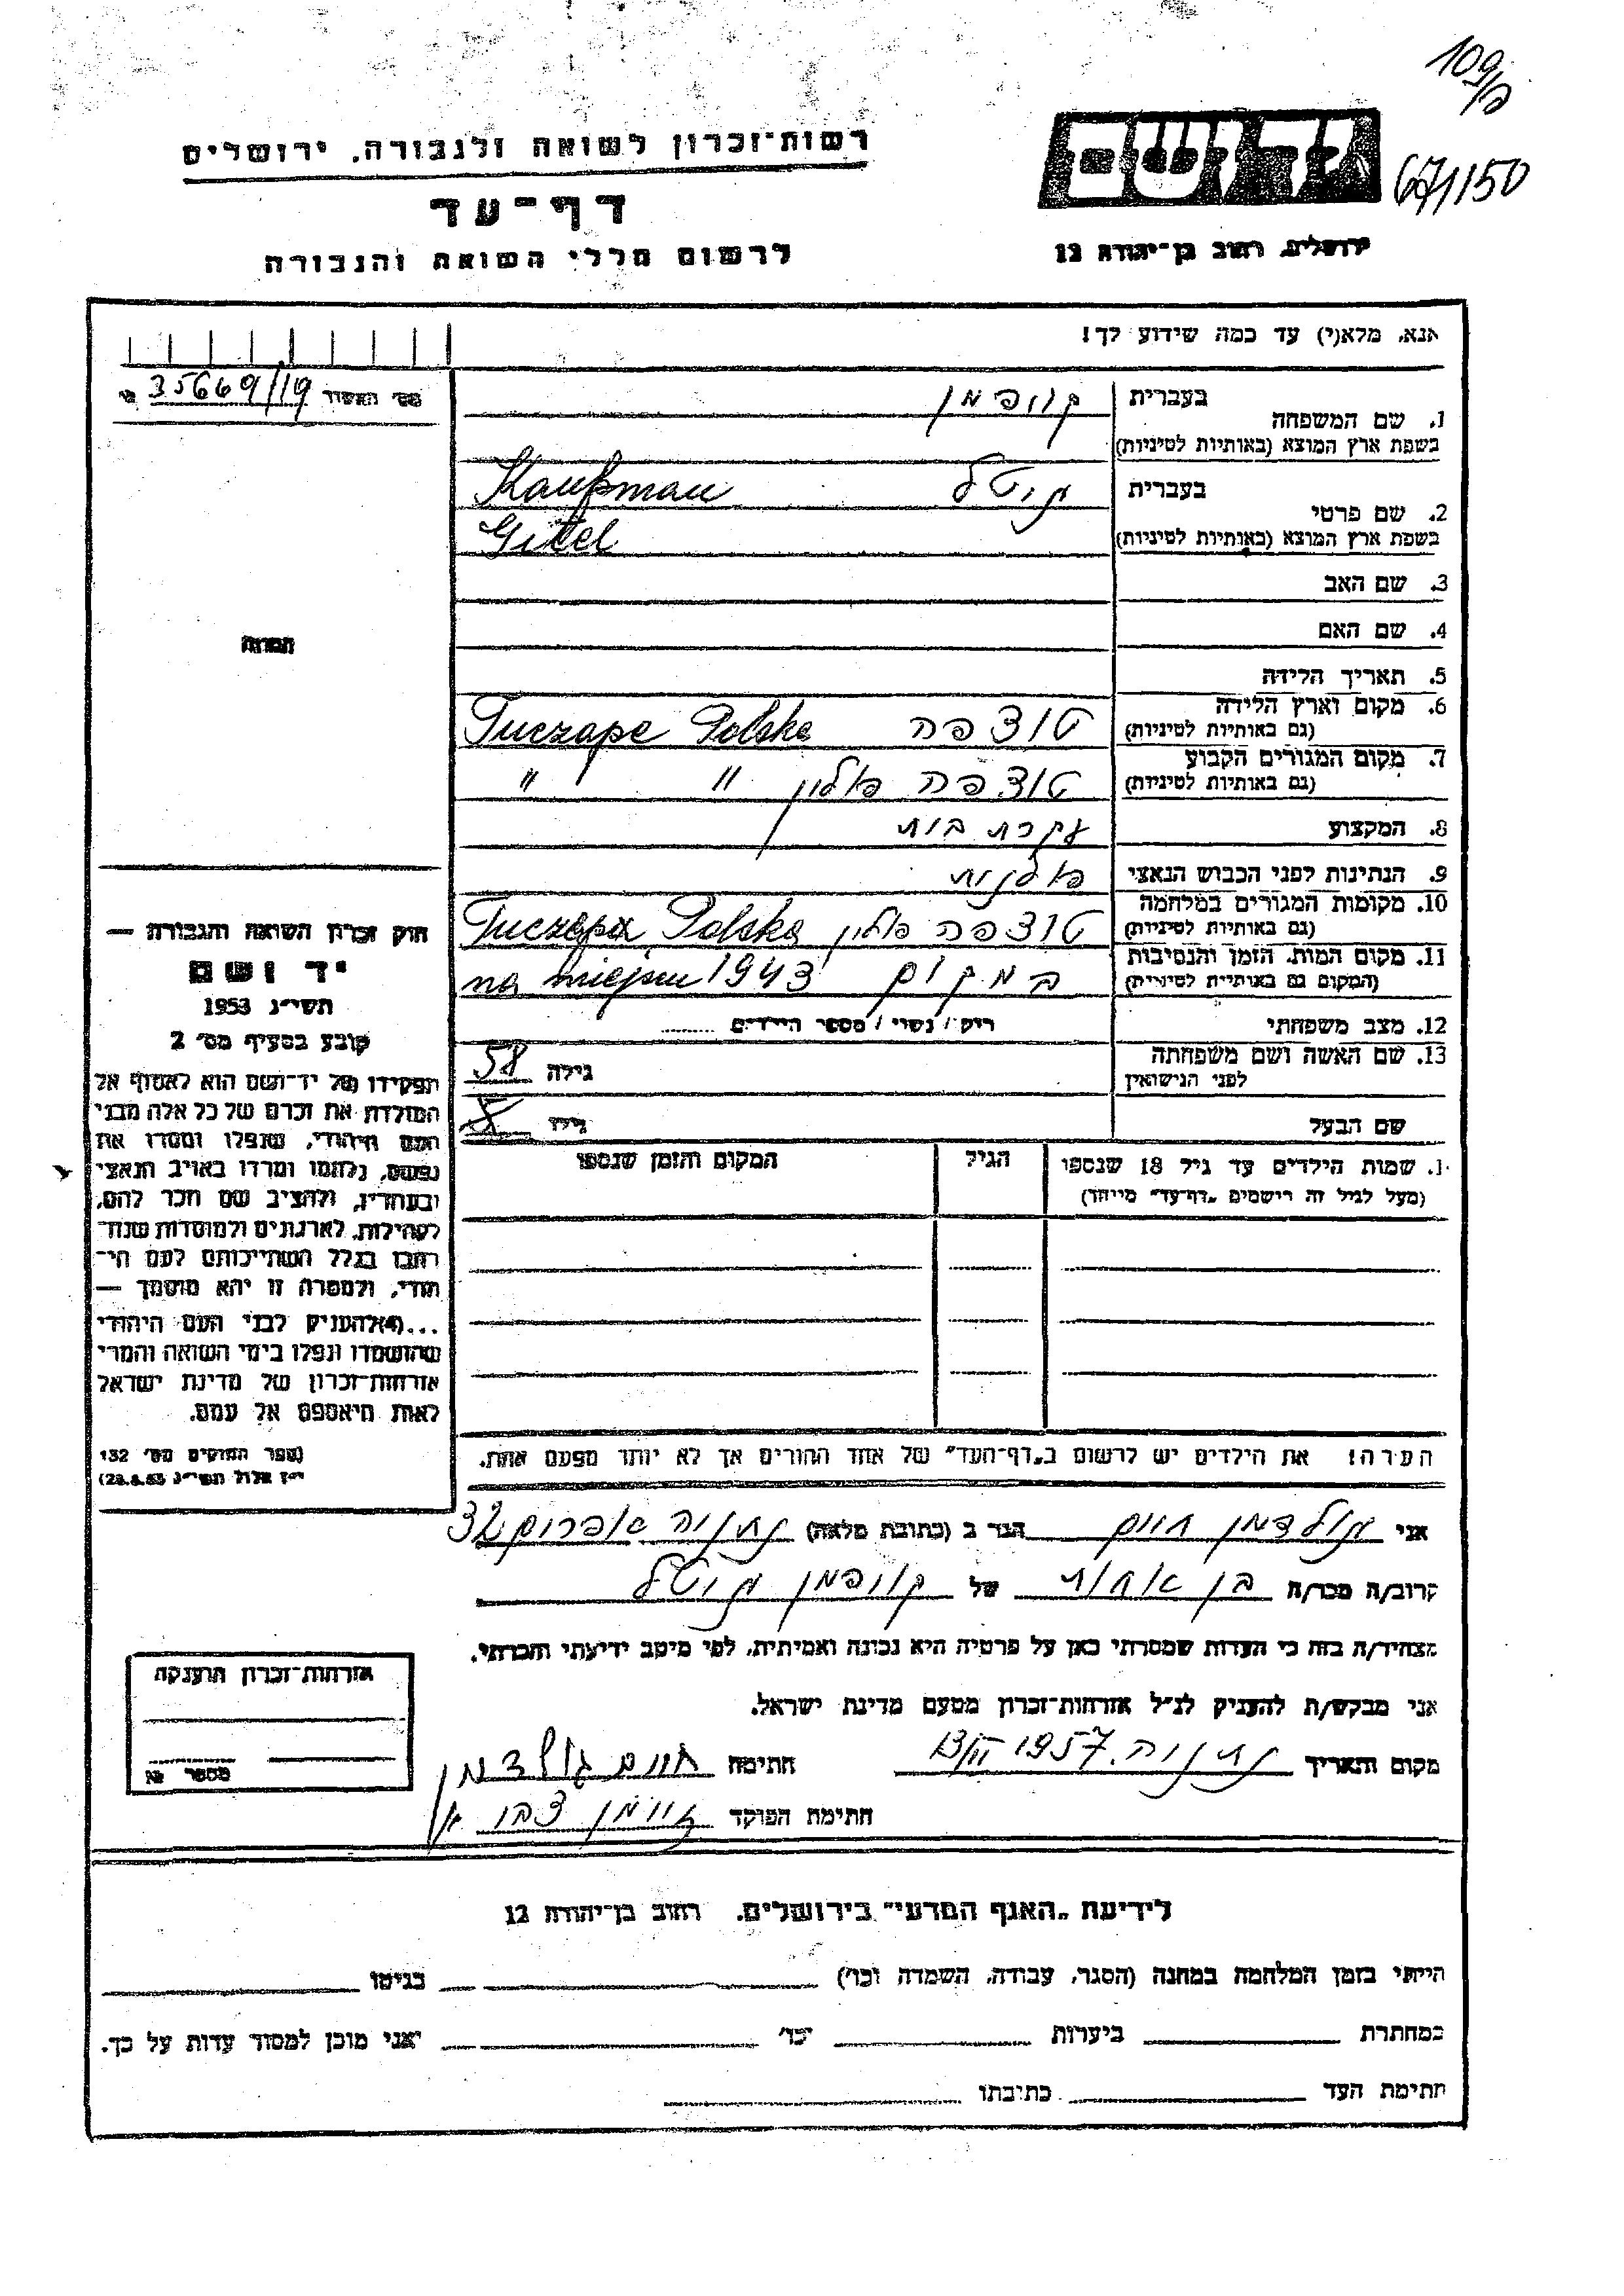 109/פ
67/150
יד ושם
ירושלים, רחוב בן־יהודה 12
רשות־זכרון לשואה ולגבורה, ירושלים
דף־עד
לרשום חללי השואה והגבורה
אנא, מלא(י) עד כמה שידוע לך!
35669/19
1. שם המשפחה
בעברית קופמן
בשפת ארץ המוצא (באותיות לטיניות)
Kaufman
2. שם פרטי
בעברית גיטל
בשפת ארץ המוצא (באותיות לטיניות)
Gitel
3. שם האב
4. שם האם
5. תאריך הלידה
6. מקום וארץ הלידה
(גם באותיות לטיניות)
טוצפה Tuczape Polska
7. מקום המגורים הקבוע
(גם באותיות לטיניות)
טוצפה פולין " "
8. המקצוע עקרת בית
9. הנתינות לפני הכבוש הנאצי פולנית
10. מקומות המגורים במלחמה
(גם באותיות לטיניות)
טוצפה פולין Tuczapa Polska
11. מקום המות, הזמן והנסיבות
(המקום גם באותיות לטיניות)
במקום na miejscu 1943
12. מצב משפחתי רוק / נשוי / מספר הילדים
13. שם האשה ושם משפחתה
לפני הנישואין
גילה 58
שם הבעל
גילו
שמות הילדים עד גיל 18 שנספו
(מעל לגיל זה רישמים „דף־עד" מייחד)
הגיל
המקום והזמן שנספו
תמונה
חוק זכרון השואה והגבורה —
יד ושם
תשי"ג 1953
קובע בסעיף מס׳ 2
תפקידו של יד־ושם הוא לאסוף אל
המולדת את זכרם של כל אלה מבני
העם היהודי, שנפלו ומסרו את
נפשם, נלחמו ומרדו באויב הנאצי
ובעוזריו, ולהציב שם וזכר להם,
לקהילות, לארגונים ולמוסדות שנח־
רבו בגלל השתייכותם לעם הי־
הודי, ולמטרה זו יהא מוסמך —
...(4) להעניק לבני העם היהודי
שהושמדו ונפלו בימי השואה והמרי
אזרחות־זכרון של מדינת ישראל
לאות היאספם אל עמם.
(ספר החוקים מס׳ 132
י"ז אלול תשי"ג 28.8.53)
הערה! את הילדים יש לרשום ב„דף־העד" של אחד ההורים אך לא יותר מפעם אחת.
אני גולדמן חיים הגר ב (כתובת מלאה) נתניה אפרים 32
קרוב/ה מכר/ה בן אחות של קופמן גיטל
מצהיר/ה בזה כי העדות שמסרתי כאן על פרטיה היא נכונה ואמיתית, לפי מיטב ידיעתי והכרתי.
אני מבקש/ת להעניק לנ"ל אזרחות־זכרון מטעם מדינת ישראל.
מקום ותאריך נתניה 1957 חתימה חיים גולדמן
חתימת הפוקד
אזרחות־זכרון הוענקה
מספר
לידיעת „האגף המדעי" בירושלים, רחוב בן־יהודה 12
הייתי בזמן המלחמה במחנה (הסגר, עבודה, השמדה וכו׳) בגיטו
במחתרת ביערות וכו׳ אני מוכן למסור עדות על כך.
חתימת העד כתיבתו